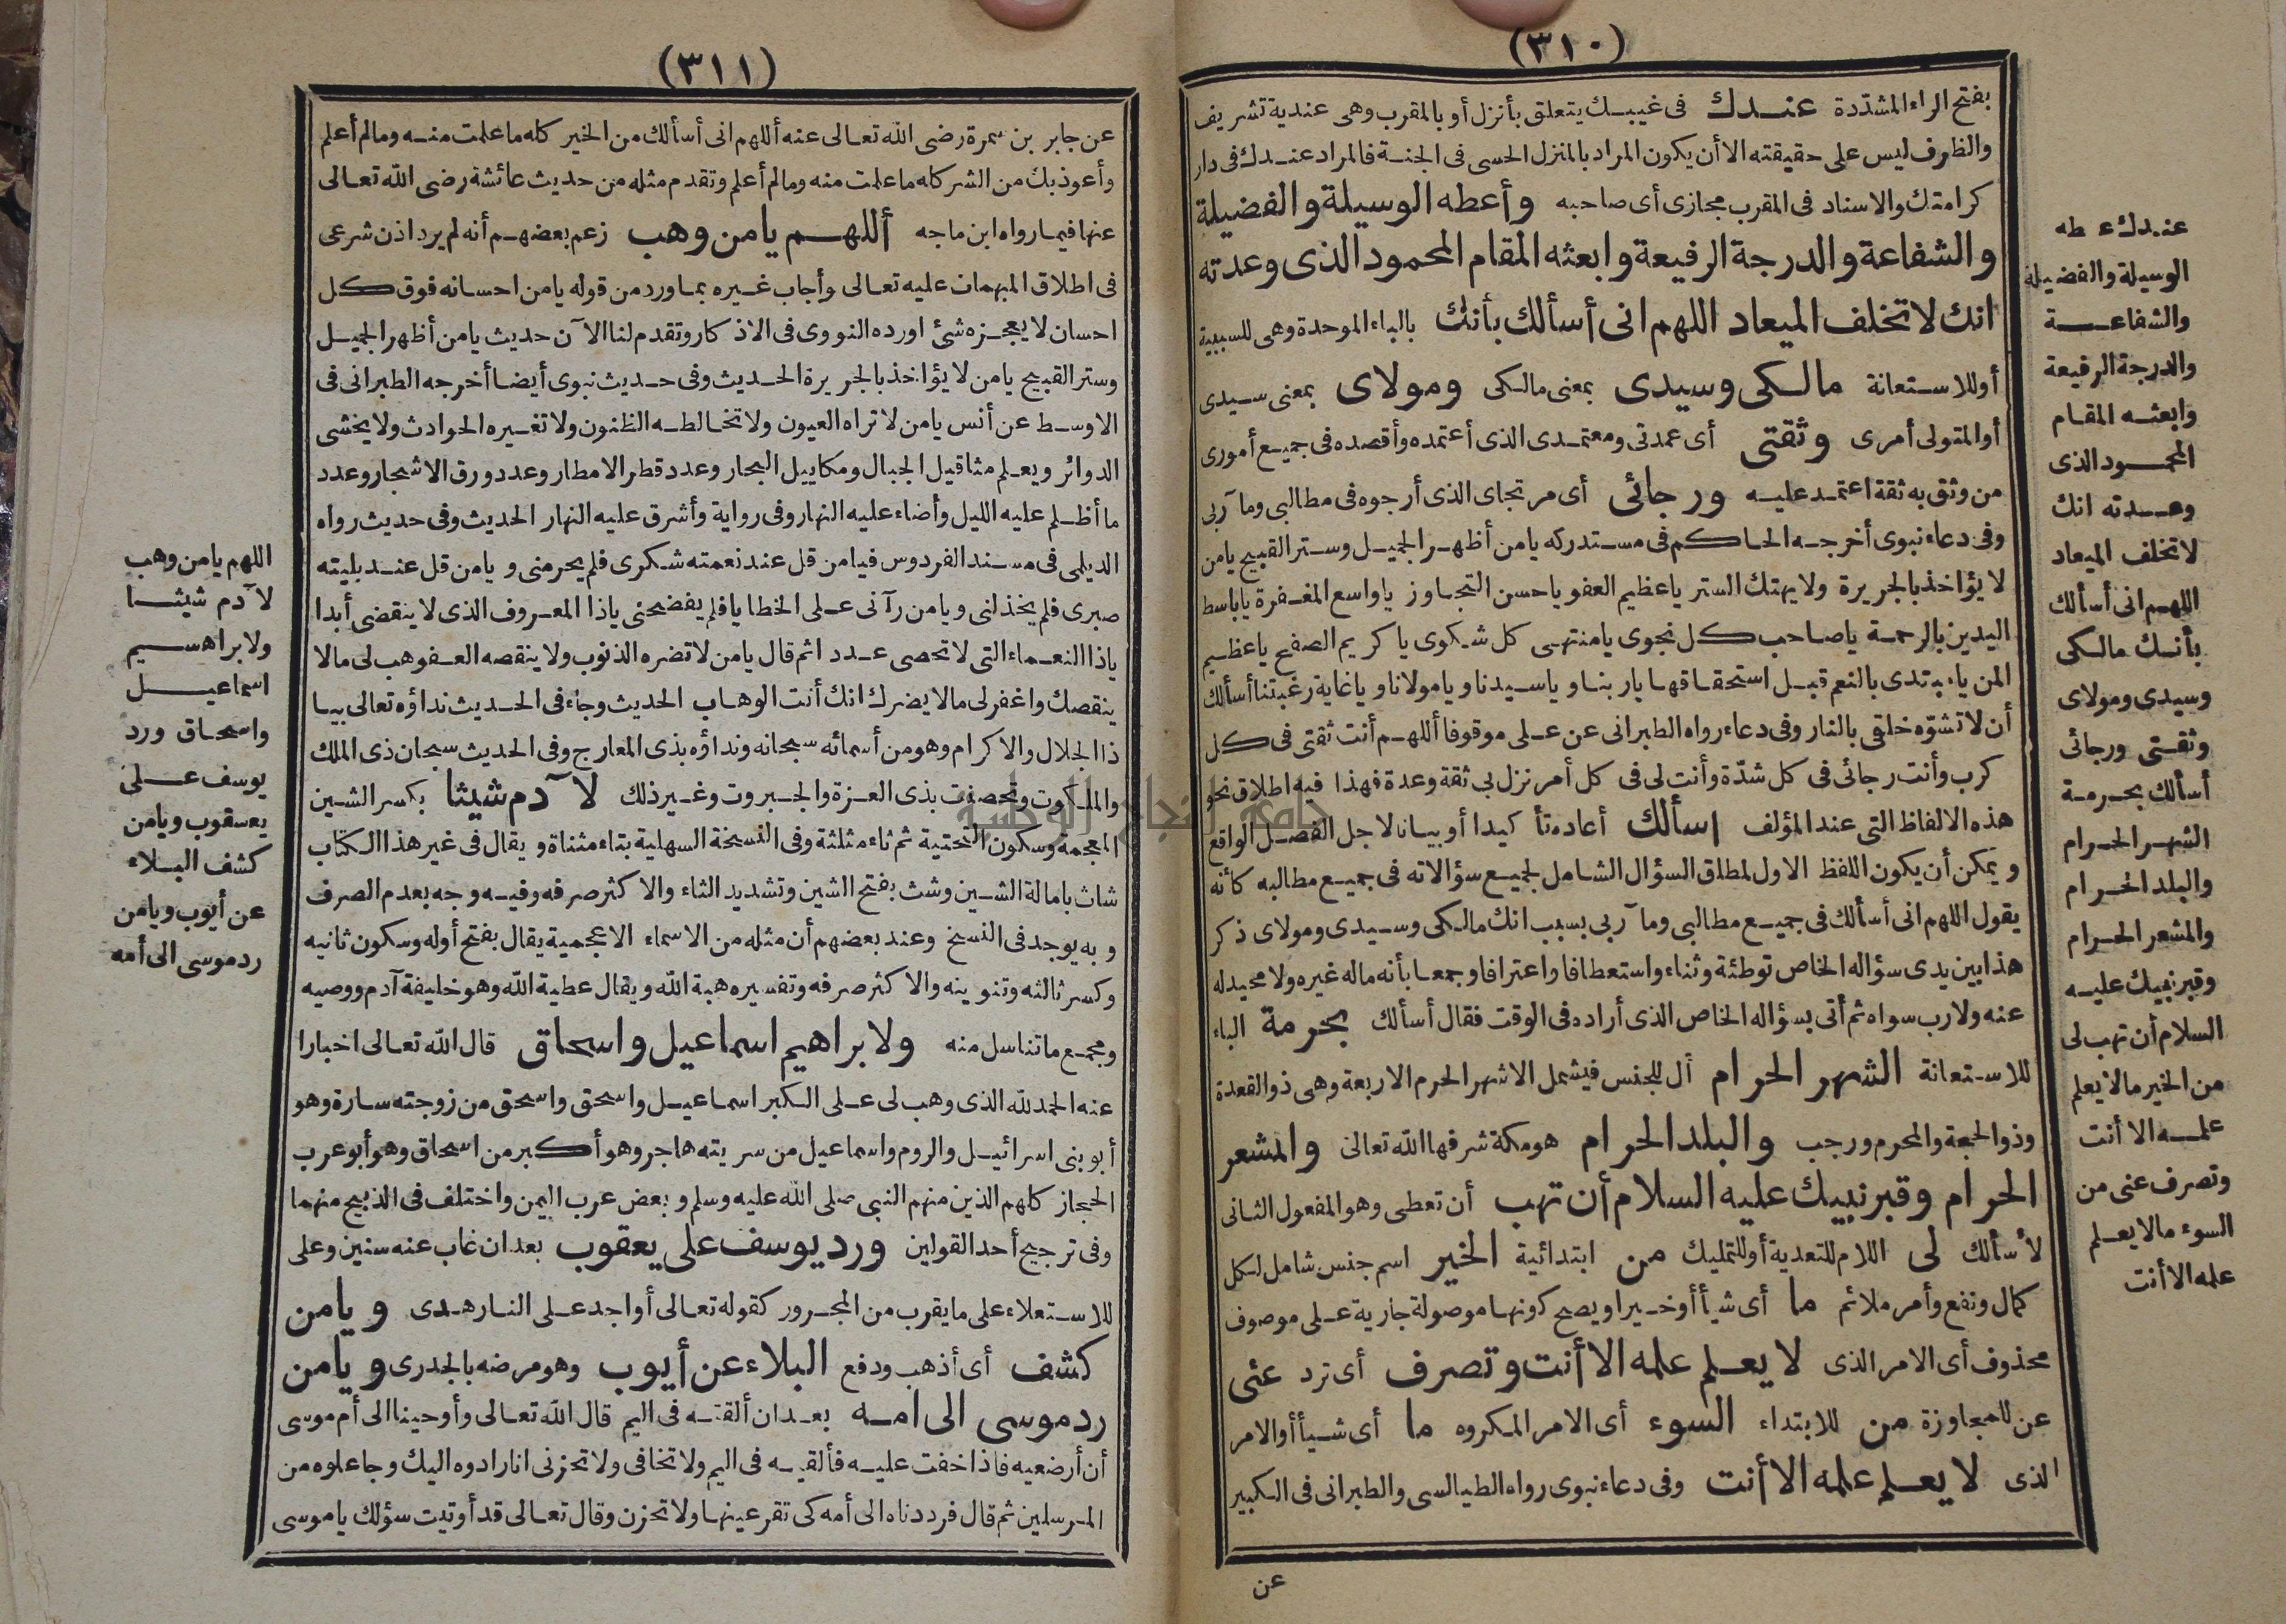 (٣١٠)
بفتح الراء المشدّدة عندك فى غيبك يتعلق بأنزل أو بالمقرب وهى عندية تشريف
والظرف ليس على حقيقته الا أن يكون المراد بالمنزل الحسى فى الجنة فالمراد عندك فى دار
كرامتك والاسناد فى المقرب مجازى أى صاحبه وأعطه الوسيلة والفضيلة
والشفاعة والدرجة الرفيعة وابعثه المقام المحمود الذى وعدته
انك لا تخلف الميعاد اللهم انى أسألك بأنك بالباء الموحدة وهى للسببية
أوللاستعانة مالكى وسيدى بمعنى مالكى ومولاى بمعنى سيدى
أو المتولى أمرى وثقتى أى عمدتى ومعتمدى الذى أعتمده وأقصده فى جميع أمورى
من وثق به ثقة اعتمد عليه ورجائى أى مرتجاى الذى أرجوه فى مطالبى ومآربى
وفى دعاء نبوى أخرجه الحاكم فى مستدركه يامن أظهر الجميل وستر القبيح يامن
لا يؤاخذ بالجريرة ولا يهتك الستر ياعظيم العفو ياحسن التجاوز ياواسع المغفرة ياباسط
اليدين بالرحمة ياصاحب كل نجوى يامنتهى كل شكوى ياكريم الصفح ياعظيم
المن يامبتدى بالنعم قبل استحقاقها ياربنا وياسيدنا ويامولانا وياغاية رغبتنا أسألك
أن لا تشوّه خلقى بالنار وفى دعاء رواه الطبرانى عن على موقوفا أللهم أنت ثقتى فى كل
كرب وأنت رجائى فى كل شدّة وأنت لى فى كل أمر نزل بى ثقة وعدة فهذا فيه اطلاق نحو
هذه الالفاظ التى عند المؤلف اسألك أعاده تأكيدا أو بيانا لاجل الفصل الواقع
ويمكن أن يكون اللفظ الاول لمطلق السؤال الشامل لجميع سؤالاته فى جميع مطالبه كأنه
يقول اللهم انى أسألك فى جميع مطالبى ومآربى بسبب انك مالكى وسيدى ومولاى ذكر
هذا بين يدى سؤاله الخاص توطئة وثناء واستعطافا واعترافا وجمعا بأنه ماله غيره ولا محيد له
عنه ولارب سواه ثم أتى بسؤاله الخاص الذى أراده فى الوقت فقال أسألك بحرمة الباء
للاستعانة الشهر الحرام أل للجنس فيشمل الاشهر الحرم الاربعة وهى ذوالقعدة
وذوالحجة والمحرم ورجب والبلد الحرام هو مكة شرفها الله تعالى والمشعر
الحرام وقبر نبيك عليه السلام أن تهب أن تعطى وهو المفعول الثانى
لأسألك لى اللام للتعدية أو للتمليك من ابتدائية الخير اسم جنس شامل لكل
كمال ونفع وأمر ملائم ما أى شيأ أوخيرا ويصح كونها موصولة جارية على موصوف
محذوف أى الامر الذى لا يعلم علمه الا أنت وتصرف أى ترد عنى
عن للمجاوزة من للابتداء السوء أى الامر المكروه ما أى شيأ أو الامر
الذى لا يعلم علمه الا أنت وفى دعاء نبوى رواه الطيالسى والطبرانى فى الكبير
عن
عندك عطه
الوسيلة والفضيلة
والشفاعة
والدرجة الرفيعة
وابعثه المقام
المحمود الذى
وعدته انك
لا تخلف الميعاد
اللهم انى أسألك
بأنك مالكى
وسيدى ومولاى
وثقتى ورجائى
أسألك بحرمة
الشهر الحرام
والبلد الحرام
والمشعر الحرام
وقبر نبيك عليه
السلام أن تهب لى
من الخير مالا يعلم
علمه الا أنت
وتصرف عنى من
السوء مالا يعلم
علمه الا أنت
(٣١١)
عن جابر بن سمرة رضى الله تعالى عنه أللهم انى أسألك من الخير كله ما علمت منه ومالم أعلم
وأعوذ بك من الشر كله ما علمت منه ومالم أعلم وتقدم مثله من حديث عائشة رضى الله تعالى
عنها فيما رواه ابن ماجه أللهم يامن وهب زعم بعضهم أنه لم يرد اذن شرعى
فى اطلاق المبهمات عليه تعالى وأجاب غيره بما ورد من قوله يامن احسانه فوق كل
احسان لا يعجزه شئ اورده النووى فى الاذكار وتقدم لنا الآن حديث يامن أظهر الجميل
وستر القبيح يامن لا يؤاخذ بالجريرة الحديث وفى حديث نبوى أيضا أخرجه الطبرانى فى
الاوسط عن أنس يامن لا تراه العيون ولا تخالطه الظنون ولا تغيره الحوادث ولا يخشى
الدوائر ويعلم مثاقيل الجبال ومكاييل البحار وعدد قطر الامطار وعدد ورق الاشجار وعدد
ما أظلم عليه الليل وأضاء عليه النهار وفى رواية وأشرق عليه النهار الحديث وفى حديث رواه
الديلمى فى مسند الفردوس فيامن قل عند نعمته شكرى فلم يحرمنى ويامن قل عند بليته
صبرى فلم يخذلنى ويامن رآنى على الخطايا فلم يفضحنى ياذا المعروف الذى لا ينقضى أبدا
ياذا النعماء التى لا تحصى عدد اثم قال يامن لا تضره الذنوب ولا ينقصه العفو هب لى مالا
ينقصك واغفر لى مالا يضرك انك أنت الوهاب الحديث وجاء فى الحديث نداؤه تعالى بيا
ذا الجلال والاكرام وهو من أسمائه سبحانه ونداؤه بذى المعارج وفى الحديث سبحان ذى الملك
والملكوت وتحصنت بذى العزة والجبروت وغير ذلك لآدم شيثا بكسر الشين
المعجمة وسكون التحتية ثم ثاء مثلثة وفى النسخة السهلية بتاء مثناة ويقال فى غير هذا الكتاب
شاث بامالة الشين وشث بفتح الشين وتشديد الثاء والاكثر صرفه وفيه وجه بعدم الصرف
وبه يوجد فى النسخ وعند بعضهم أن مثله من الاسماء الاعجمية يقال بفتح أوله وسكون ثانيه
وكسر ثالثه وتنوينه والاكثر صرفه وتفسيره هبة الله ويقال عطية الله وهو خليفة آدم ووصيه
ومجمع ما تناسل منه ولابراهيم اسماعيل واسحاق قال الله تعالى اخبارا
عنه الحمد لله الذى وهب لى على الكبر اسماعيل واسحق واسحق من زوجته سارة وهو
أبو بنى اسرائيل والروم واسماعيل من سريته هاجر وهو أكبر من اسحاق وهو أبو عرب
الحجاز كلهم الذين منهم النبى صلى الله عليه وسلم وبعض عرب اليمن واختلف فى الذبيح منهما
وفى ترجيح أحد القولين ورد يوسف على يعقوب بعد ان غاب عنه سنين وعلى
للاستعلاء على ما يقرب من المجرور كقوله تعالى أو اجد على النار هدى ويامن
كشف أى أذهب ودفع البلاء عن أيوب وهو مرضه بالجدرى ويامن
رد موسى الى امه بعد ان ألقته فى اليم قال الله تعالى وأوحينا الى أم موسى
أن أرضعيه فاذا خفت عليه فألقيه فى اليم ولا تخافى ولا تحزنى انا رادوه اليك وجاعلوه من
المرسلين ثم قال فرددناه الى أمه كى تقر عينها ولا تحزن وقال تعالى قد أوتيت سؤلك ياموسى
اللهم يامن وهب
لآدم شيثا
ولابراهيم
اسماعيل
واسحاق ورد
يوسف على
يعقوب ويامن
كشف البلاء
عن أيوب ويامن
رد موسى الى أمه
جامعة النجاح الوطنية